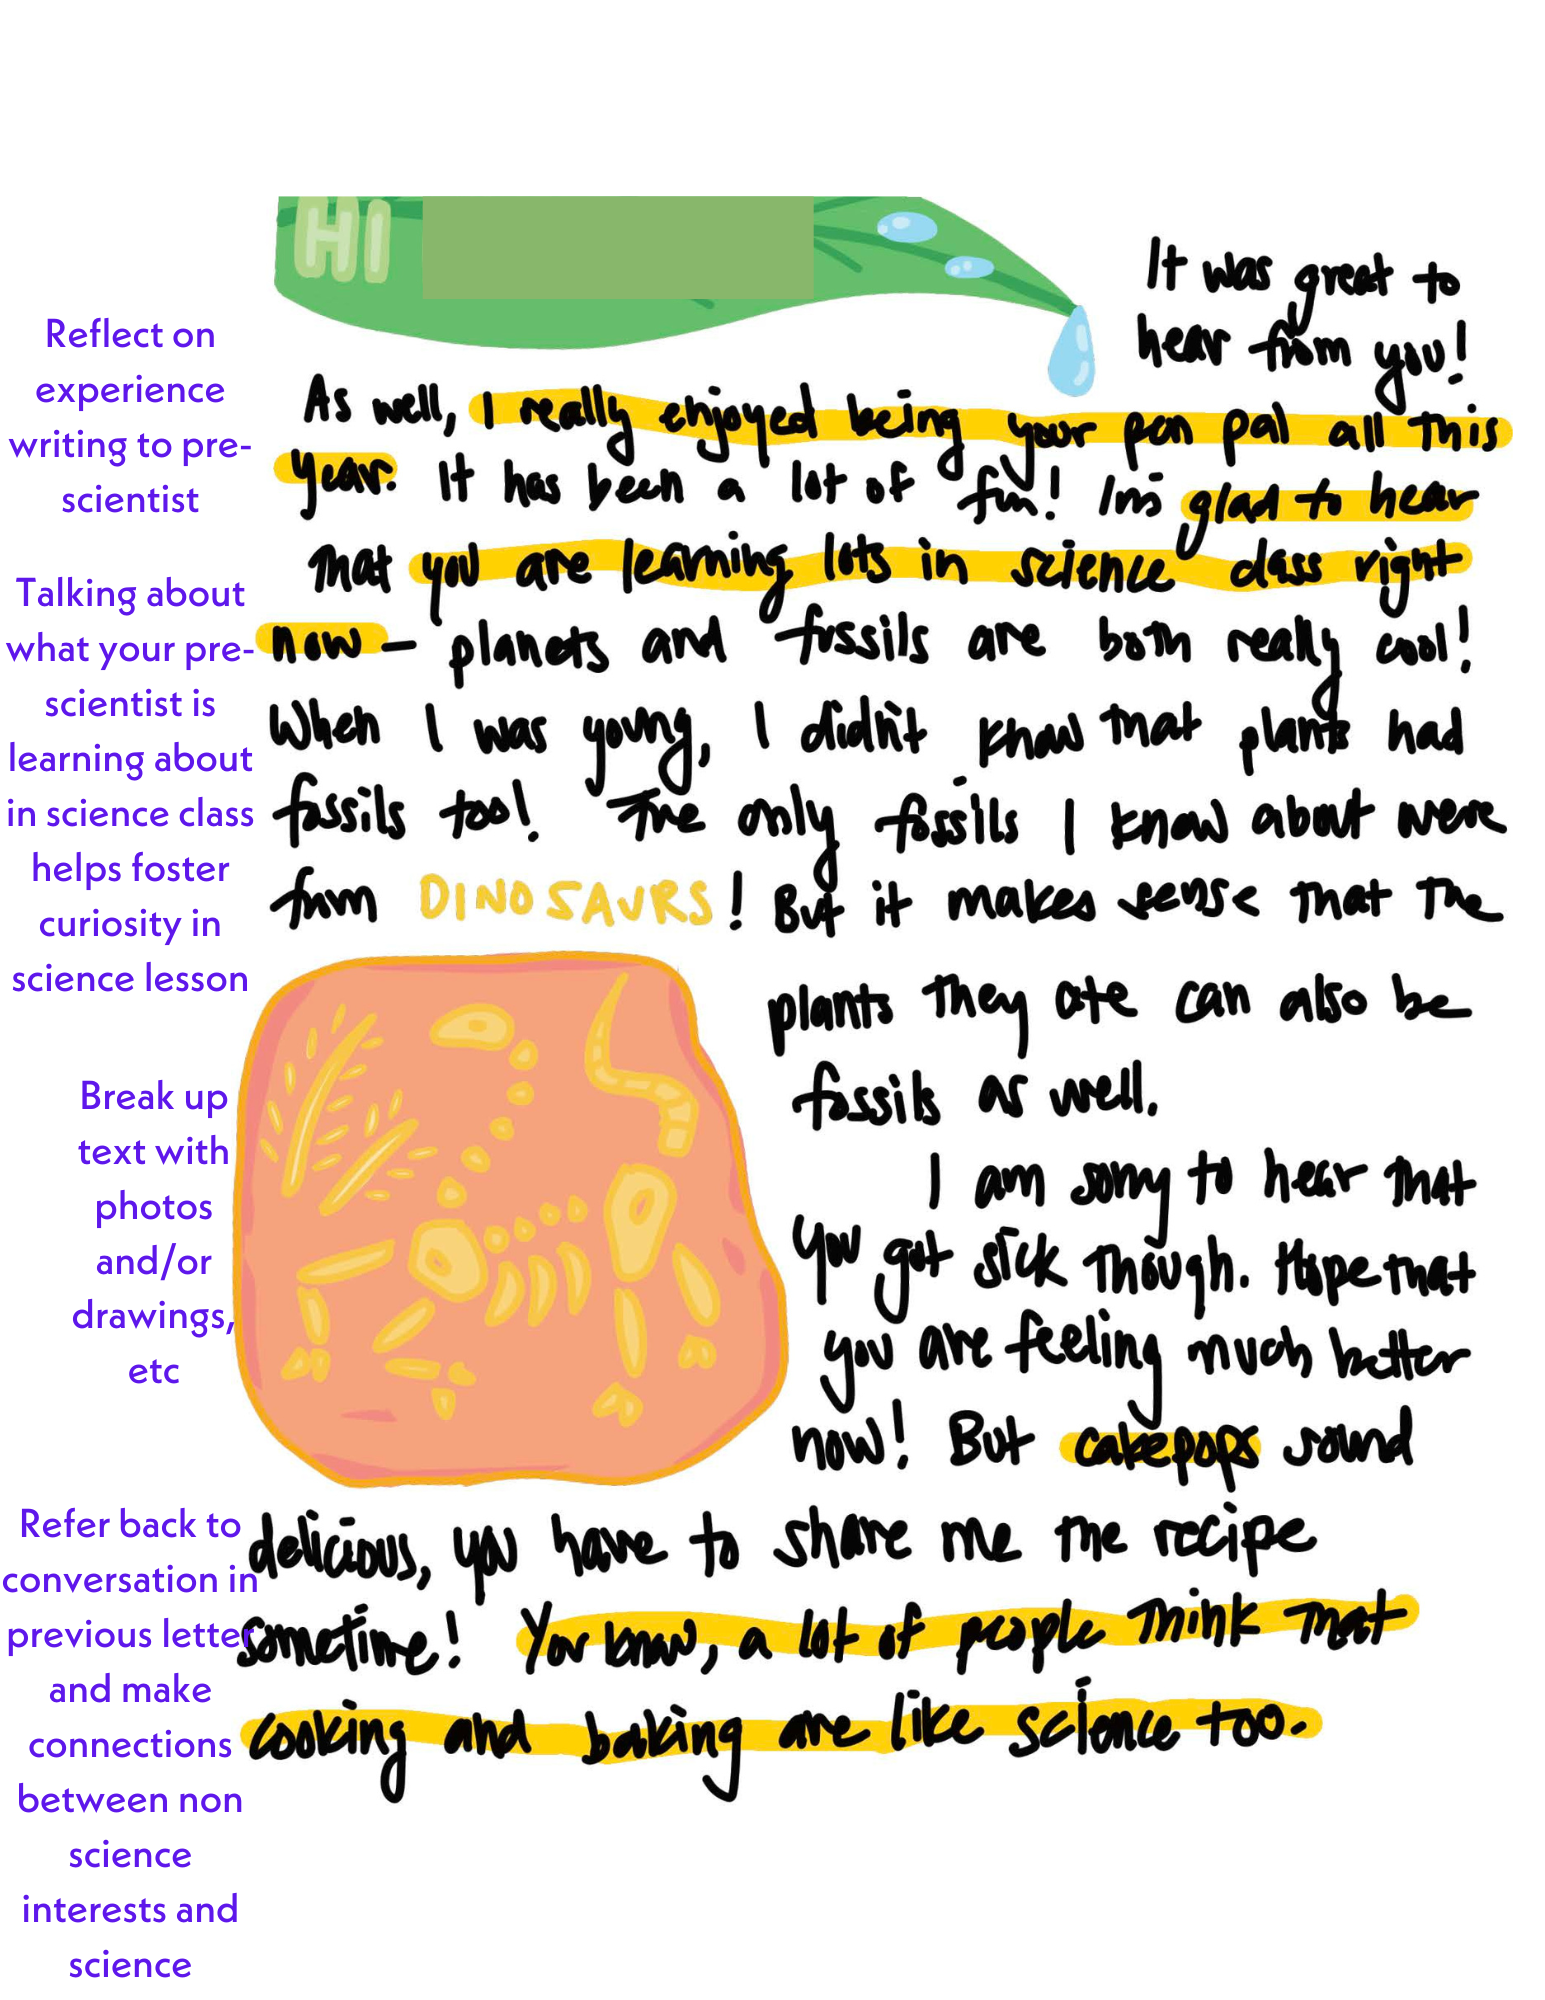 HI
It was great to
hear from you!
As well, I really enjoyed being your pen pal all this
year. It has been a lot of fun! I'm glad to hear
that you are learning lots in science class right
now – planets and fossils are both really cool!
When I was young, I didn't know that plants had
fossils too! The only fossils I know about were
from DINOSAURS! But it makes sense that the
plants they ate can also be
fossils as well.
I am sorry to hear that
you got sick though. Hope that
you are feeling much better
now! But cakepops sound
delicious, you have to share me the recipe
sometime! You know, a lot of people think that
cooking and baking are like science too.
Reflect on
experience
writing to pre-
scientist
Talking about
what your pre-
scientist is
learning about
in science class
helps foster
curiosity in
science lesson
Break up
text with
photos
and/or
drawings,
etc
Refer back to
conversation in
previous letter
and make
connections
between non
science
interests and
science